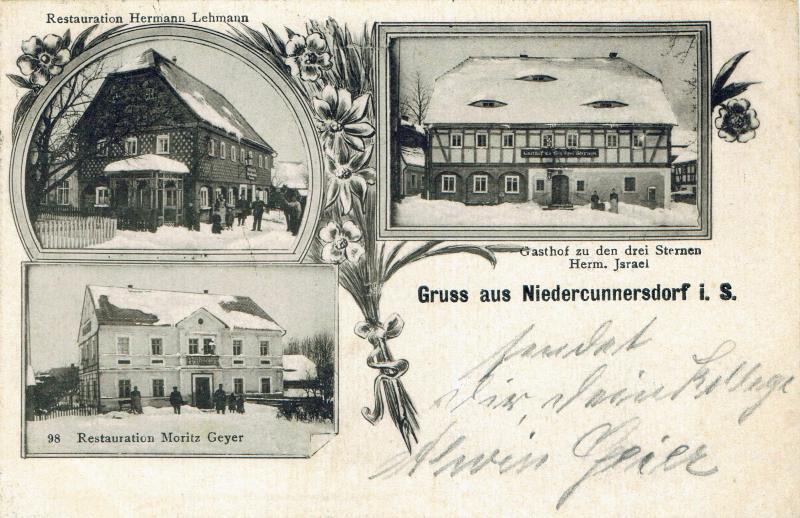 Restauration Hermann Lehmann
Gasthof zu den drei Sternen
Gasthof zu den drei Sternen
Herm. Jsrael
Gruss aus Niedercunnersdorf i. S.
sendet
Dir Dein Kollege
Alwin Geier
98 Restauration Moritz Geyer